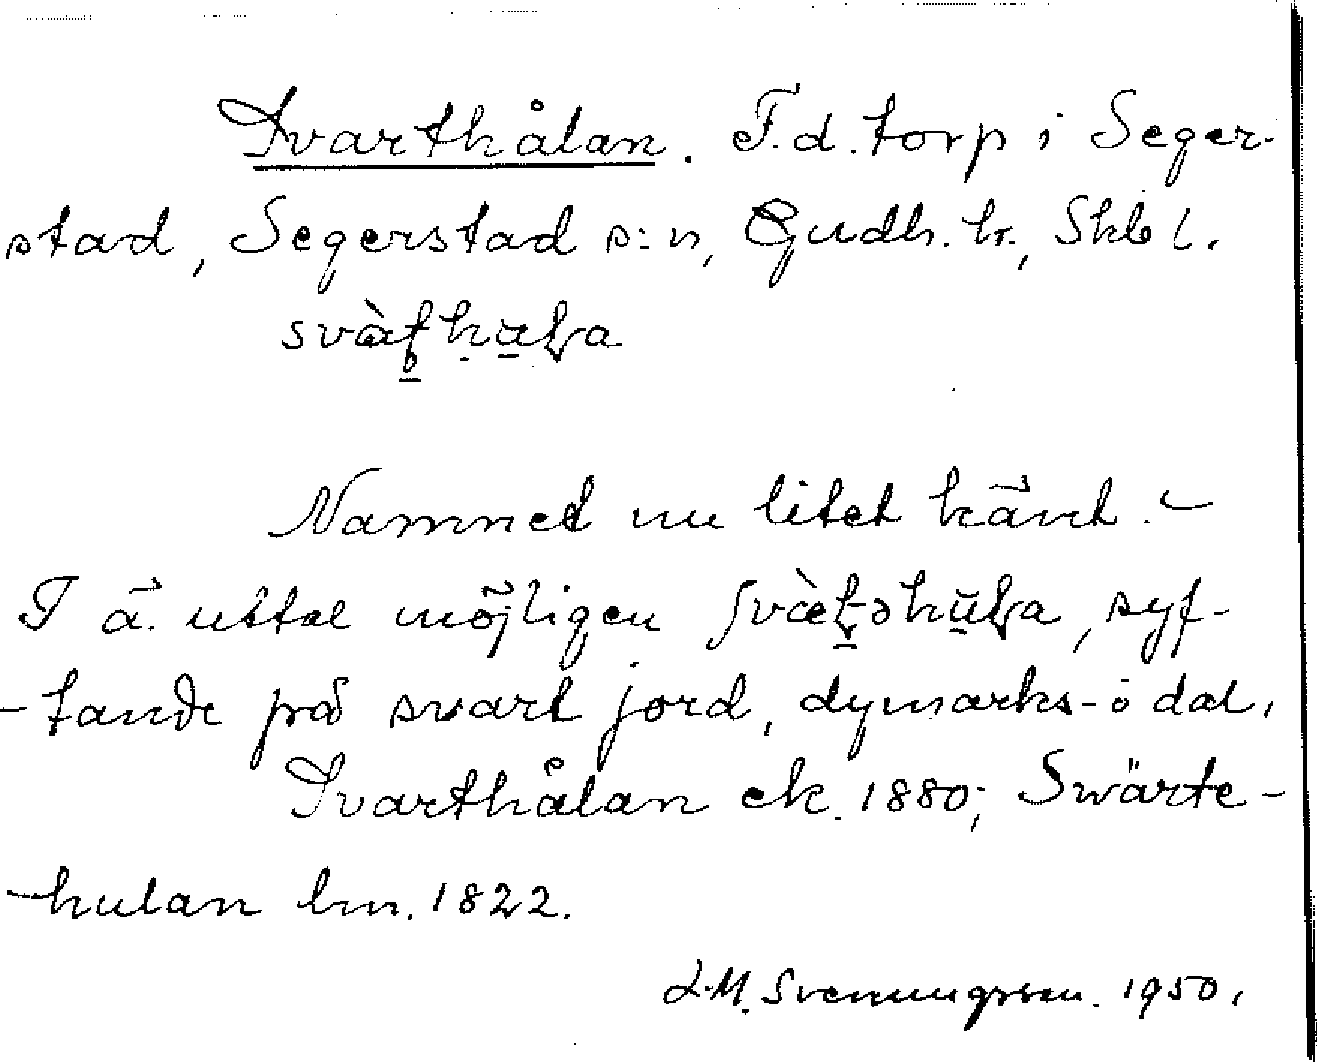 Svarthålan. F.d. torp i Seger-
stad, Segerstad s:n, Gudh. hr., Skb l.
Namnet nu litet känt. –
I ä. uttal möjligen , syf-
-tande på svart jord, dymarks- i dal.
Svarthålan ek. 1880; Swärte-
-hulan lm. 1822.
L.M. Svenungsson. 1950.